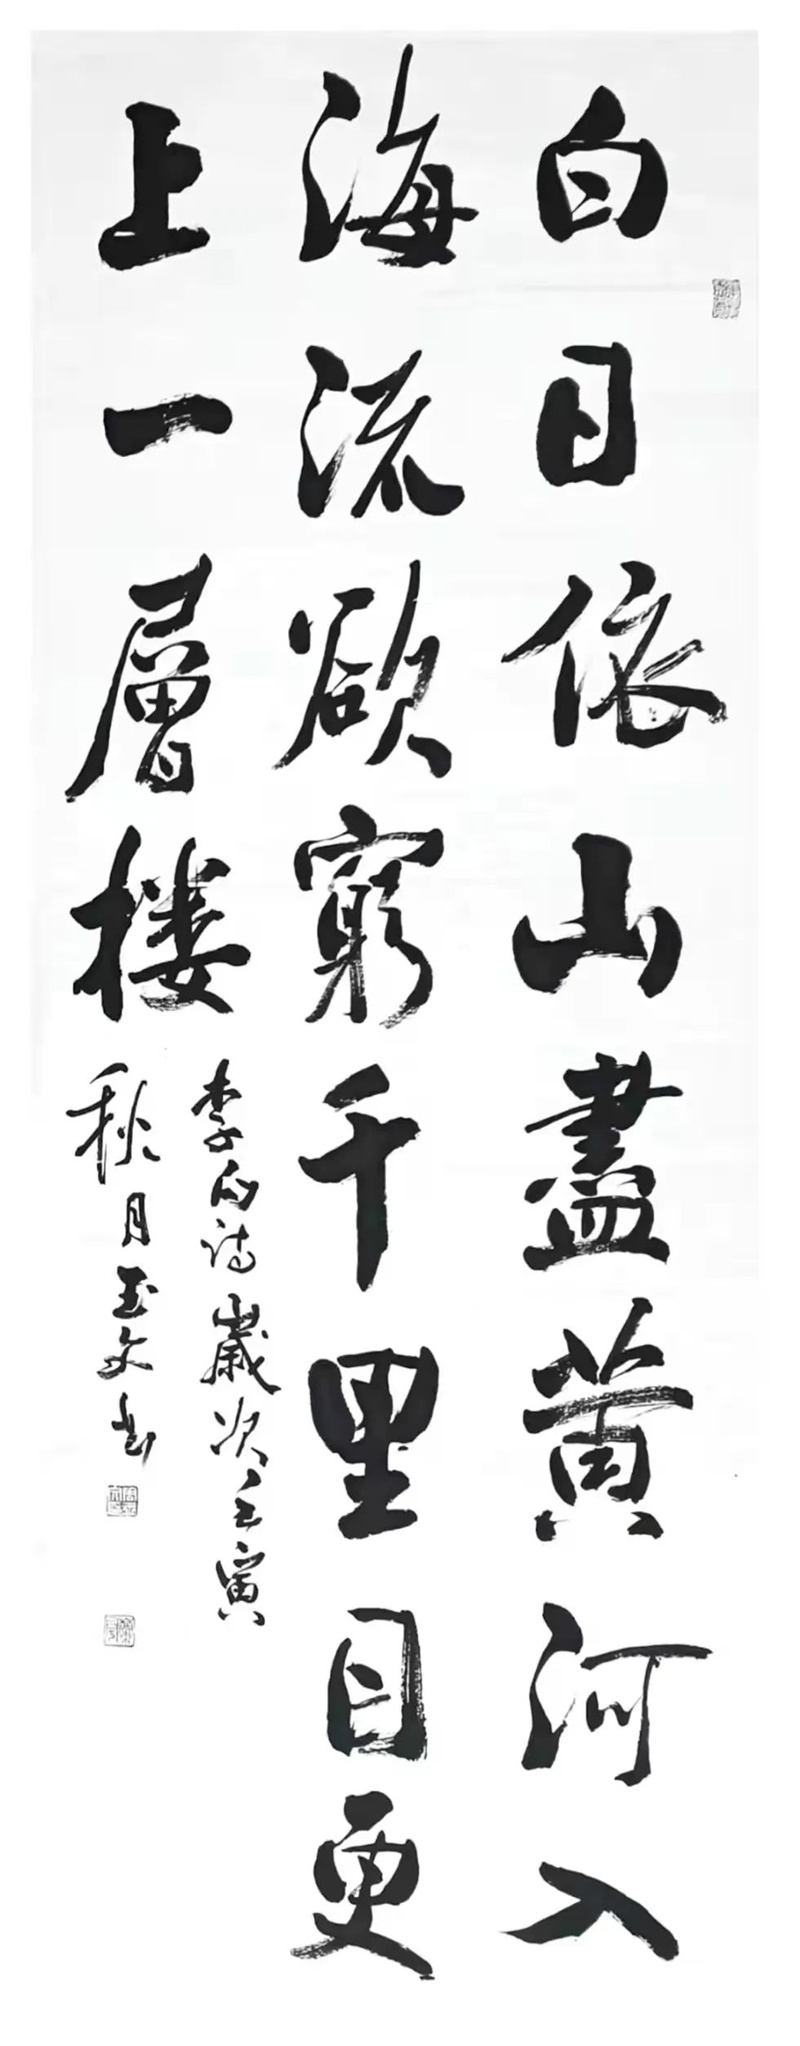 白日依山盡黄河入
海流欲窮千里目更
上一層楼
李白诗歲次壬寅
秋月玉文书